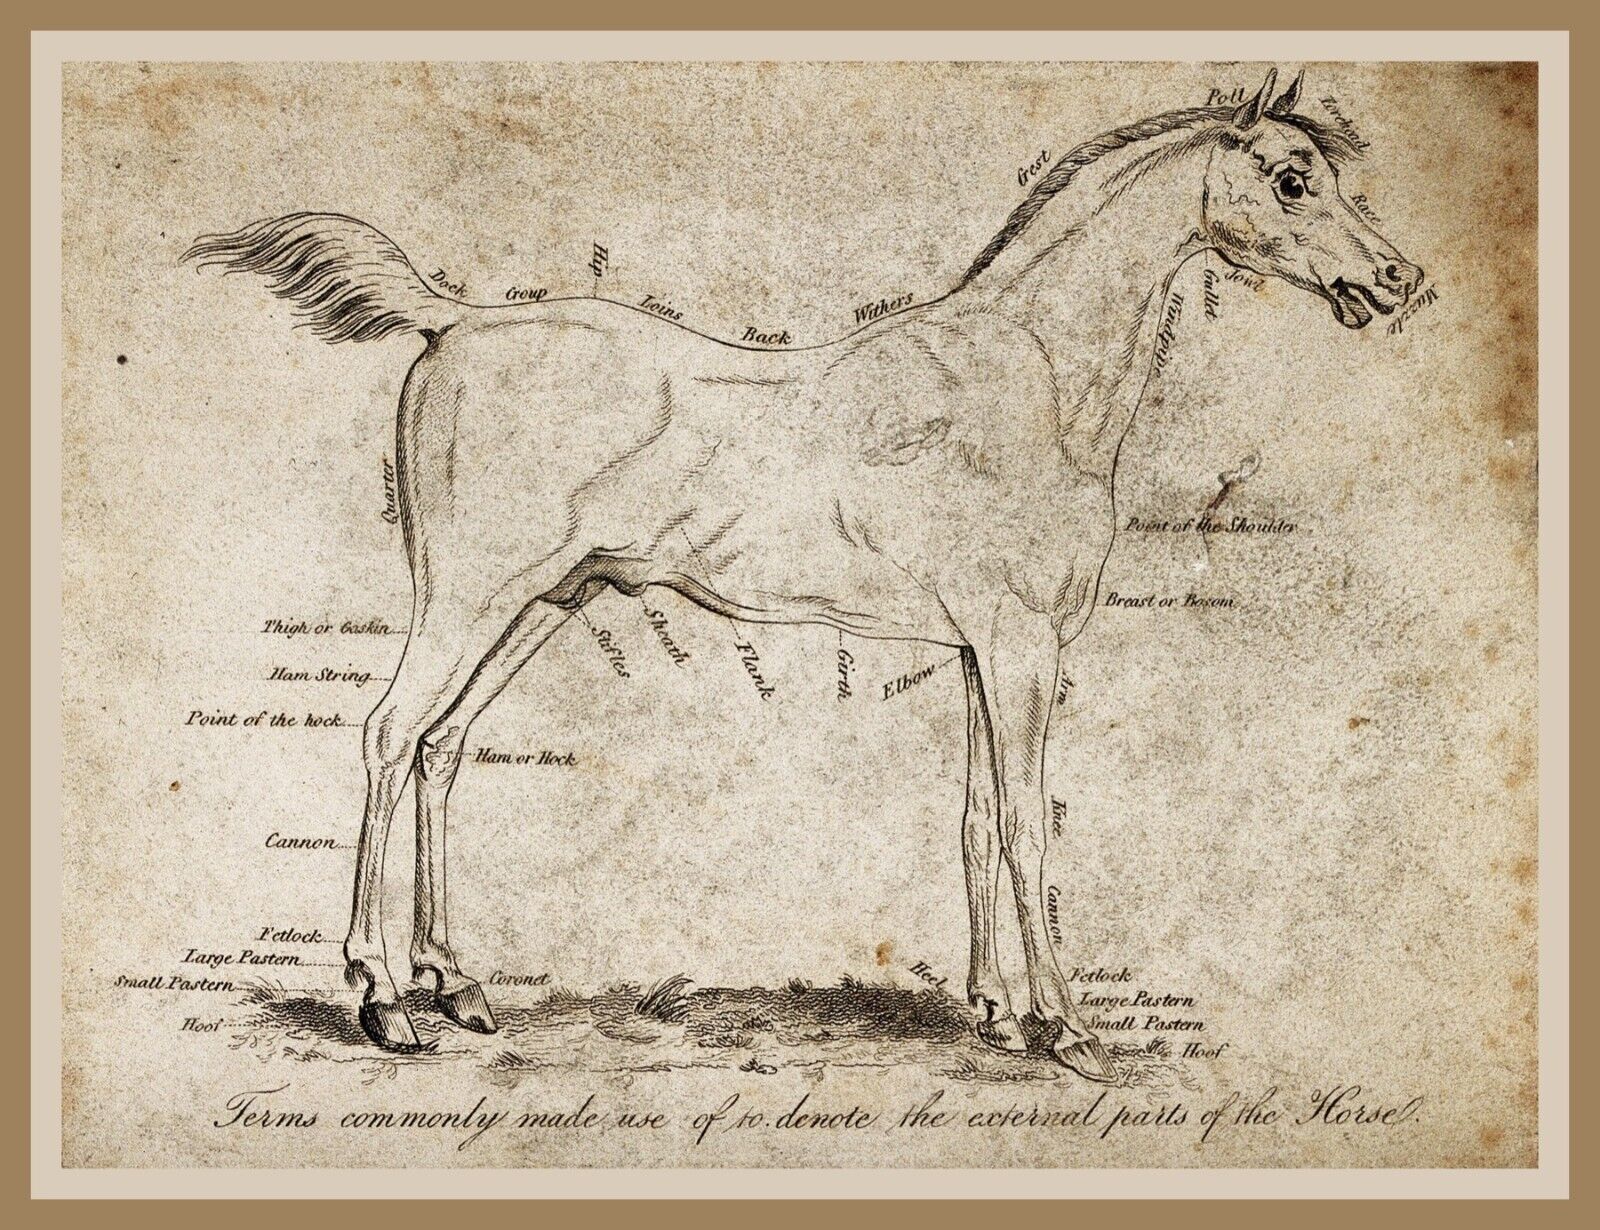 Poll
Forehead
Crest
Face
Jowl
Gullet
Muzzle
Windpipe
Hip
Dock
Croup
Loins
Withers
Back
Quarter
Point of the Shoulder
Breast or Bosom
Thigh or Gaskin
Stifles
Sheath
Flank
Girth
Elbow
Arm
Ham String
Point of the hock
Ham or Hock
Knee
Cannon
Cannon
Fetlock
Large Pastern
Small Pastern
Hoof
Coronet
Heel
Fetlock
Large Pastern
Small Pastern
Hoof
Terms commonly made use of to denote the external parts of the Horse.